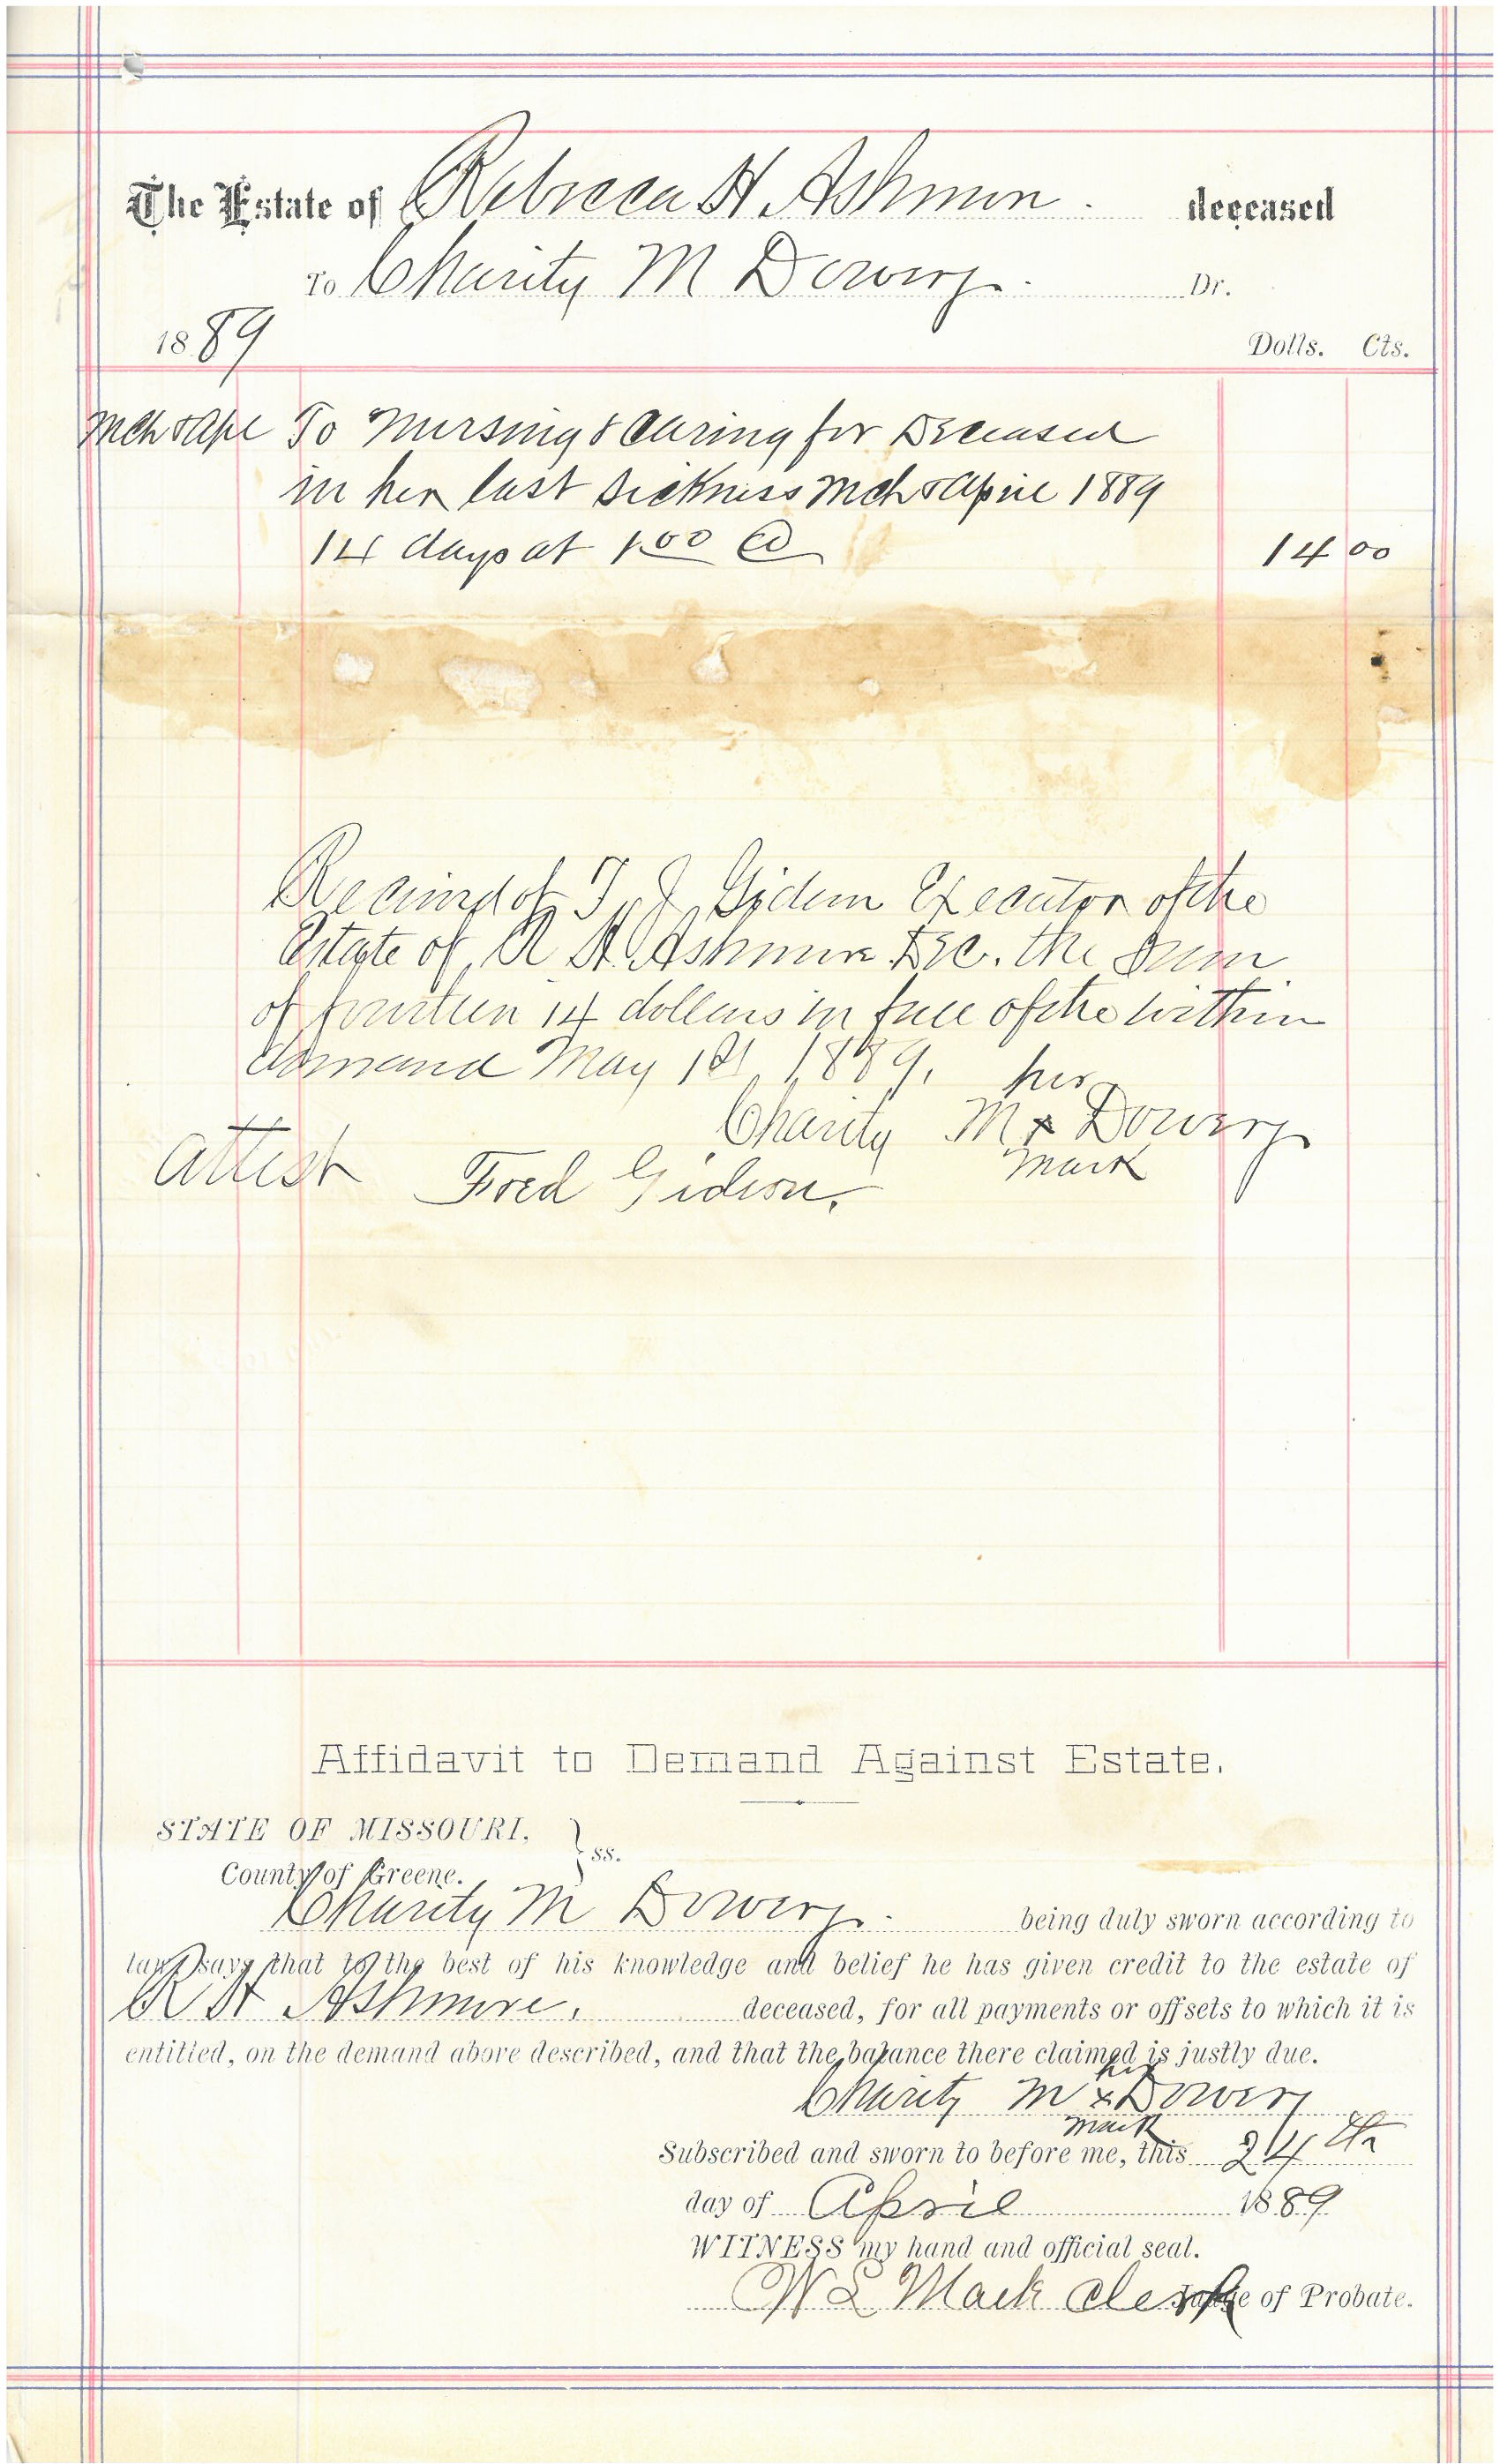 The Estate of Rebecca H Ashmore deceased
To Charity M Dowery Dr.
1889
Dolls. Cts.
Mch & Apl To Nursing & Caring for Deceased
in her last Sickness Mch & April 1889
14 days at 1.00 @ 14 00
Received of T J Gideon Executor of the
Estate of R H Ashmore Dec. the Sum
of fourteen 14 dollars in full of the within
demand May 1st 1889.
her
Charity M x Dowery
mark
Attest Fred Gideon.
Affidavit to Demand Against Estate.
STATE OF MISSOURI, } ss.
County of Greene.
Charity M Dowery being duly sworn according to
law, says that to the best of his knowledge and belief he has given credit to the estate of
R H Ashmore, deceased, for all payments or offsets to which it is
entitled, on the demand above described, and that the balance there claimed is justly due.
her
Charity M x Dowery
mark
Subscribed and sworn to before me, this 24th
day of April 1889
WITNESS my hand and official seal.
W L Mack Clerk Judge of Probate.